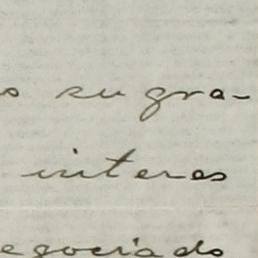 su gra-
interes
egociado